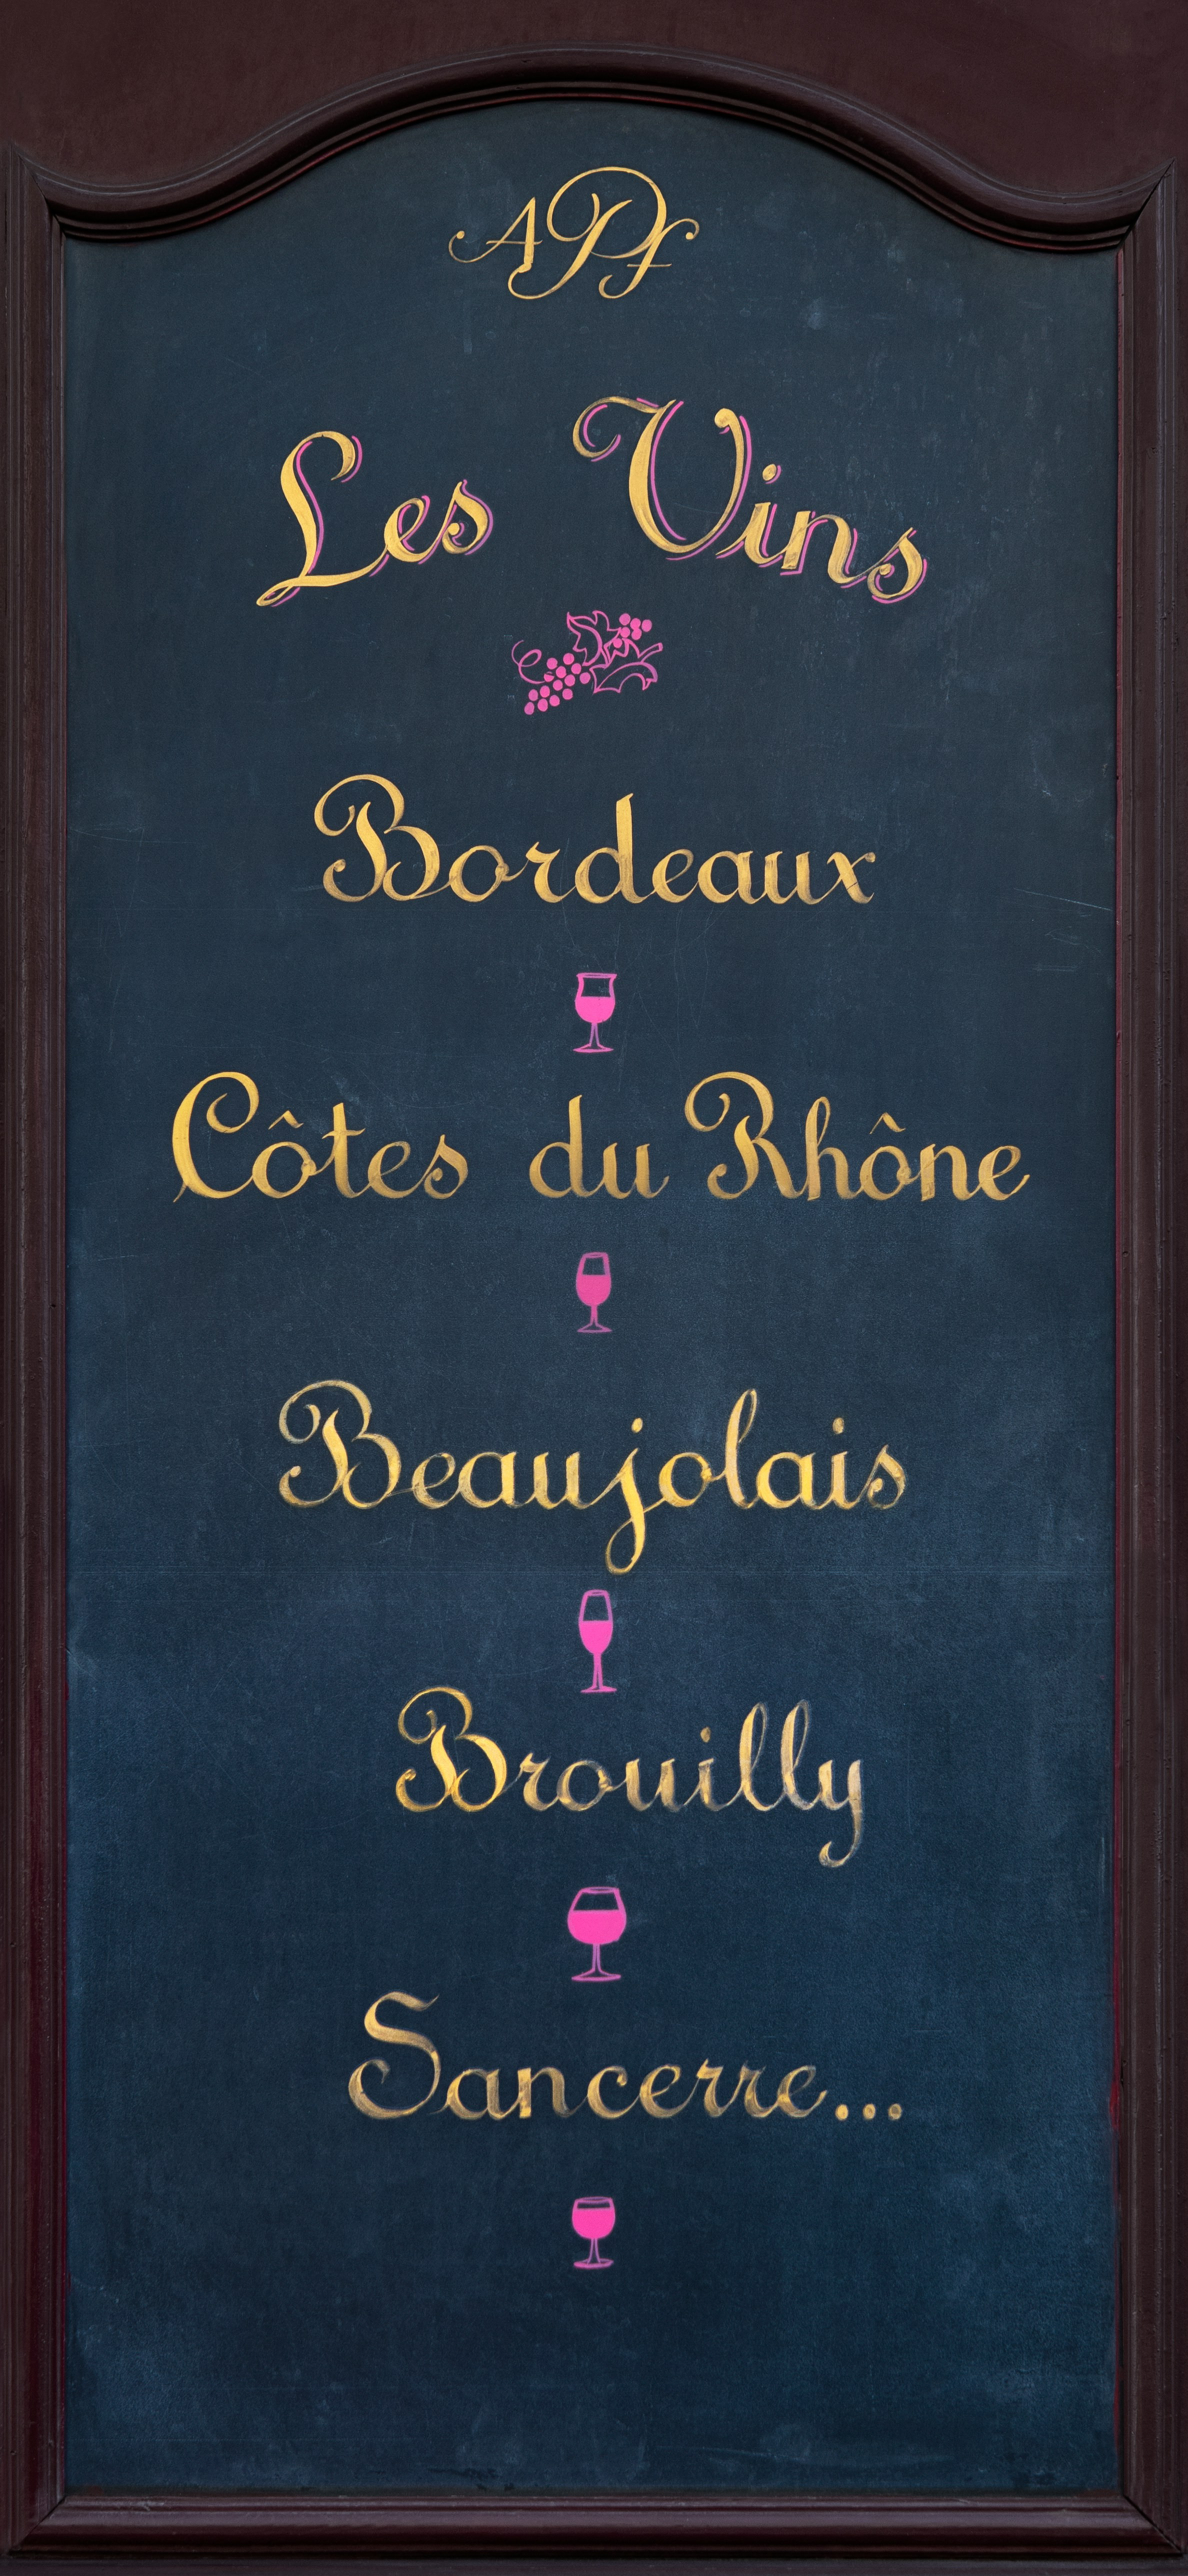 APf
Les Vins
Bordeaux
Côtes du Rhône
Beaujolais
Brouilly
Sancerre...